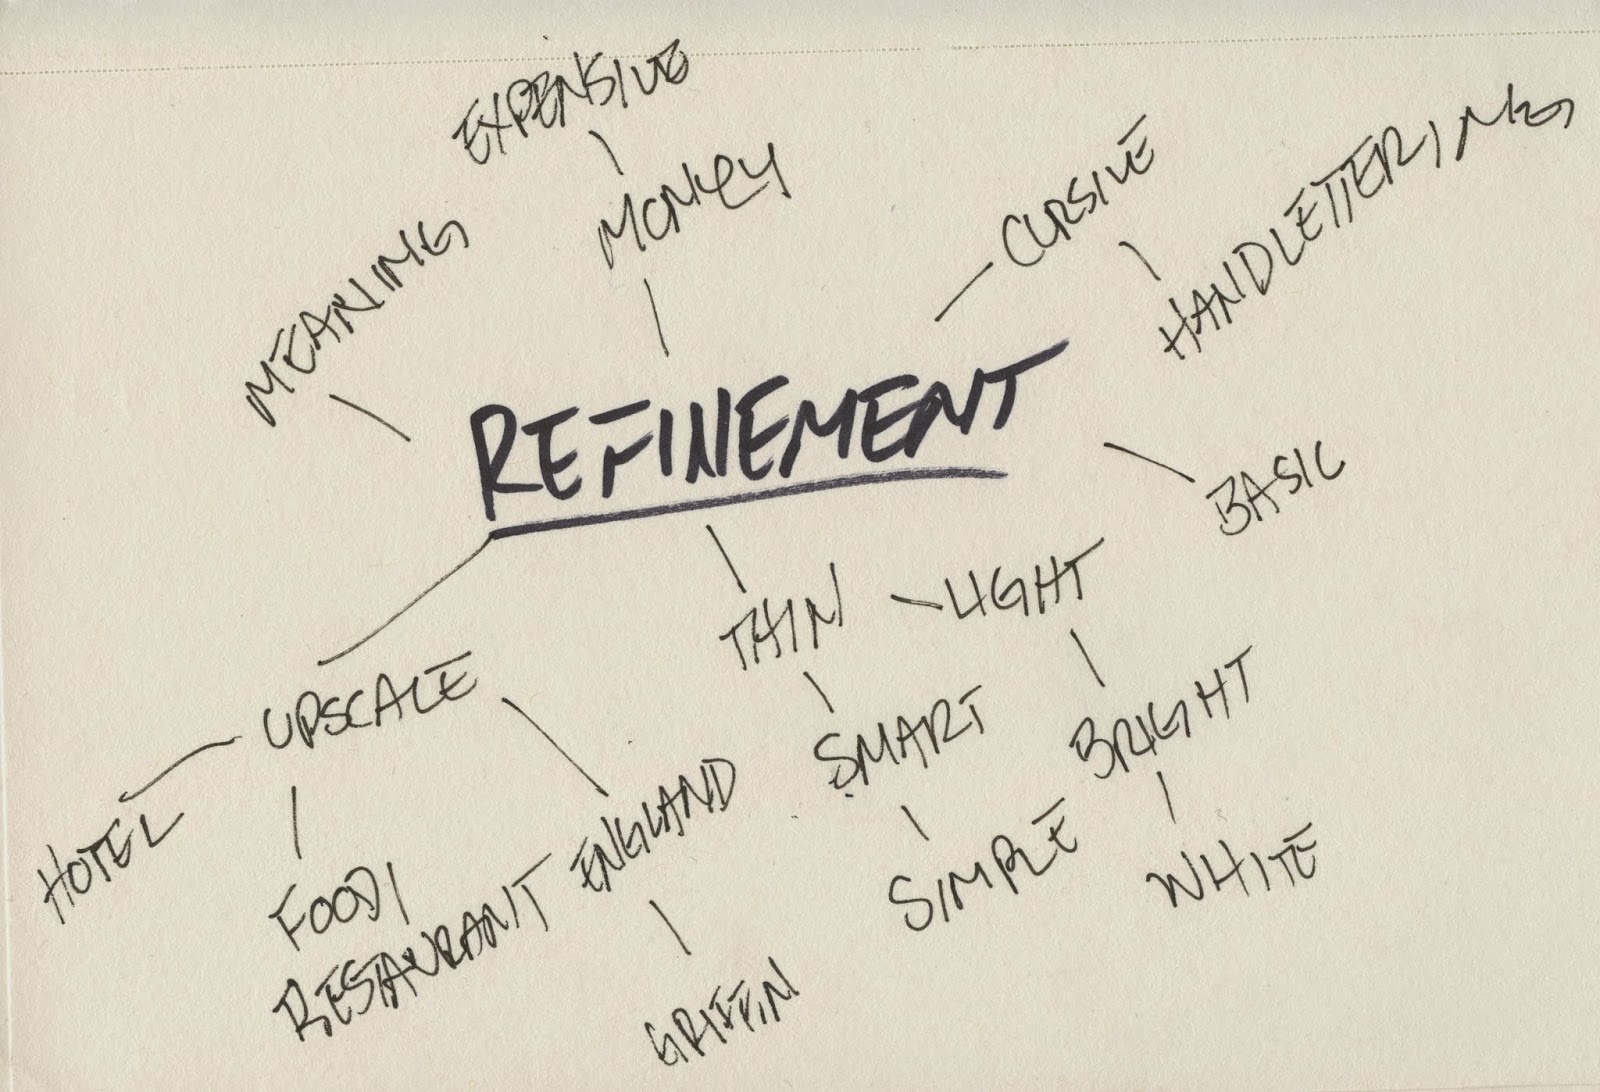 EXPENSIVE
MONEY
MEANING
CURSIVE
HANDLETTERING
REFINEMENT
BASIC
THIN
LIGHT
UPSCALE
SMART
BRIGHT
HOTEL
FOOD/
RESTAURANT
ENGLAND
SIMPLE
WHITE
GRIFFIN